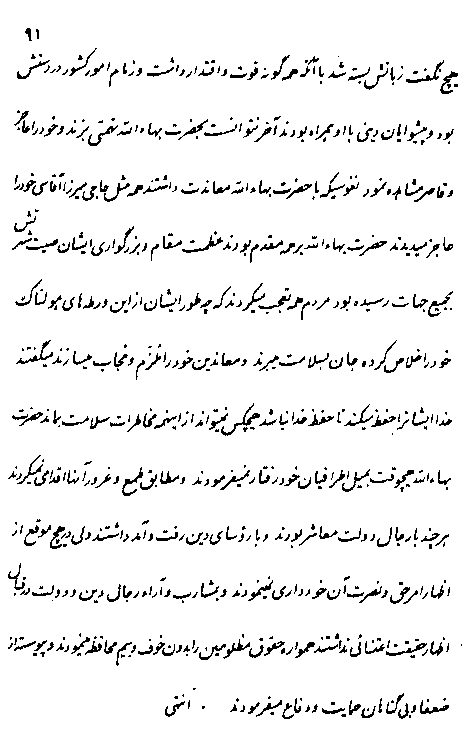 ۹۱
هیچ نگفت زبانش بسته شد با آنکه همه گونه قوت و اقتدار داشت و زمام امور کشور در دستش
بود و پیشوایان دینی با او همراه بودند آخر نتوانست بحضرت بهاءالله تهمتی بزند و خود را عاجز
و قاصر مشاهده نمود نفوسیکه با حضرت بهاءالله معاندت داشتند همه مثل حاجی میرزا آقاسی خود را
عاجز میدیدند حضرت بهاءالله بر همه مقدم بودند عظمت مقام و بزرگواری ایشان صیت شهرتش
بجمیع جهات رسیده بود مردم همه تعجب میکردند که چطور ایشان از این ورطه های هولناک
خود را خلاص کرده جان بسلامت میبرند و معاندین خود را ملزم و مجاب میسازند میگفتند
خدا ایشانرا حفظ میکند تا حفظ خدا نباشد هیچکس نمیتواند از اینهمه مخاطرات سلامت بماند حضرت
بهاءالله هیچوقت بمیل اطرافیان خود رفتار نمیفرمودند و مطابق طمع و غرور آنها اقدامی نمیکردند
هر چند با رجال دولت معاشر بودند و با رؤسای دین رفت و آمد داشتند ولی در هیچ موقع از
اظهار امر حق و نصرت آن خودداری نمینمودند و بمشارب و آراء رجال دین و دولت در قبال
اظهار حقیقت اعتنائی نداشتند همواره حقوق مظلومین را بدون خوف و بیم محافظه مینمودند و پیوسته از
ضعفا و بی گناهان حمایت و دفاع میفرمودند . انتهی